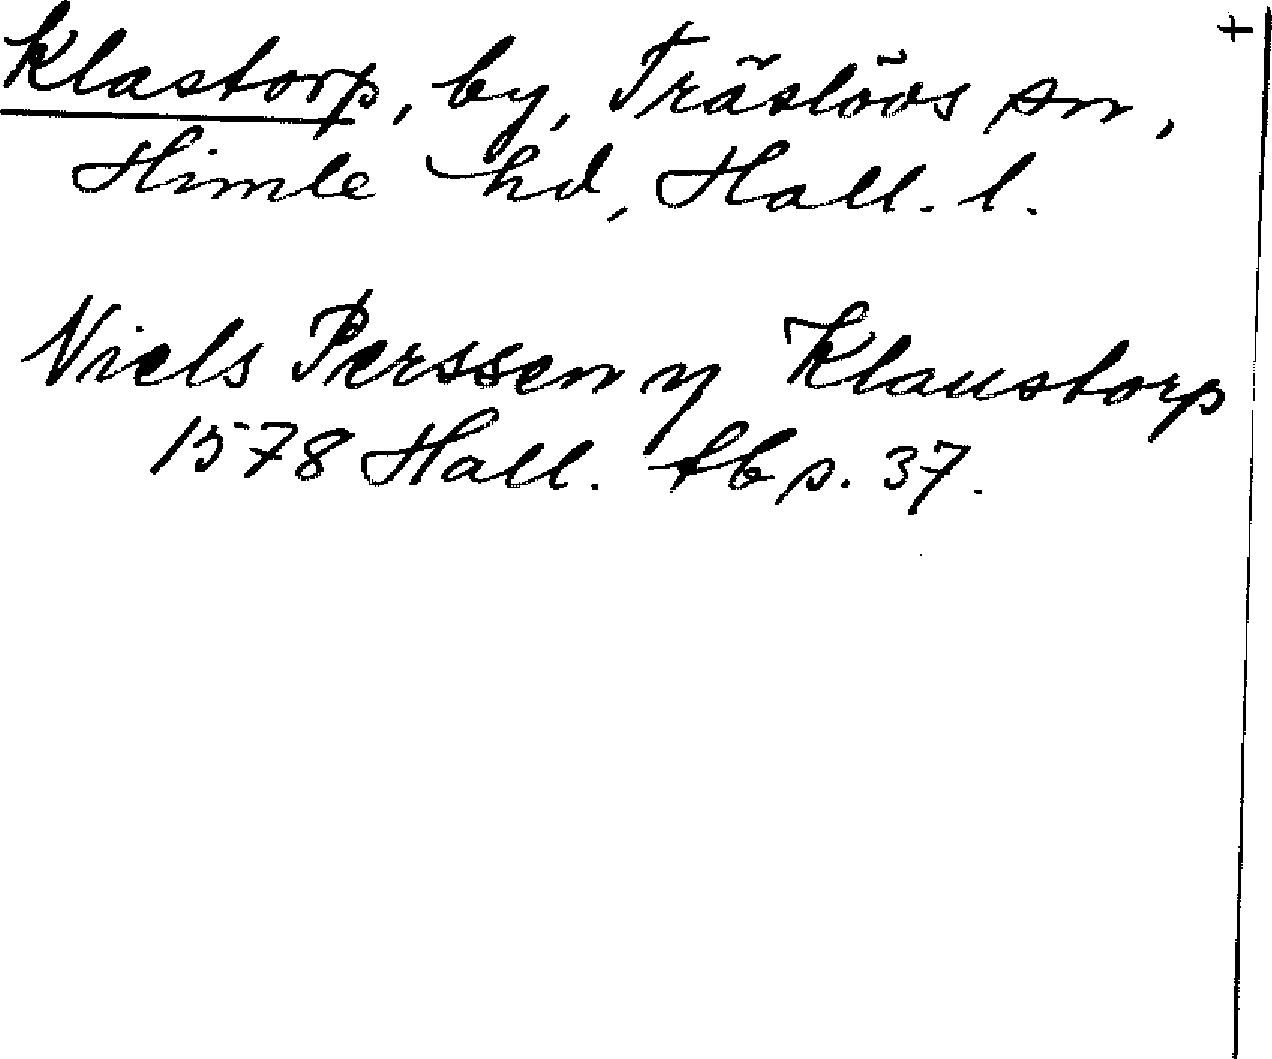 Klastorp, by, Träslövs sn, +
Himle hd, Hall. l.
Niels Perssen y Klaustorp
1578 Hall. tb s. 37.